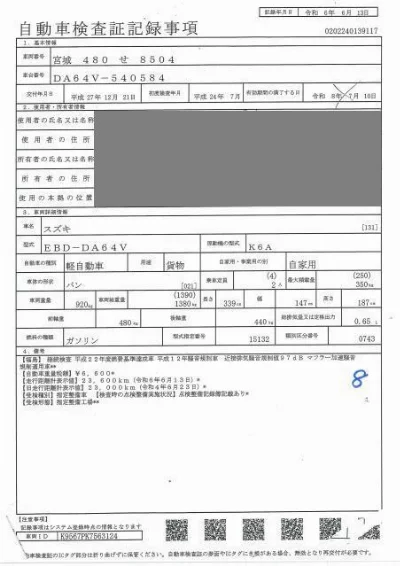 記録年月日 令和 6年 6月13日
自動車検査証記録事項
0202240139117
1.基本情報
車両番号 宮城 480 せ 8504
車台番号 DA64V-540584
交付年月日 平成27年12月21日 初度検査年月 平成24年 7月 有効期間の満了する日 令和 8年 7月10日
2.使用者・所有者情報
使用者の氏名又は名称
使用者の住所
所有者の氏名又は名称
所有者の住所
使用の本拠の位置
3.車両詳細情報
車名 スズキ [131]
型式 EBD-DA64V 原動機の型式 K6A
自動車の種別 軽自動車 用途 貨物 自家用・事業用の別 自家用
車体の形状 バン [021] 乗車定員 (4) 2人 最大積載量 (250) 350kg
車両重量 920kg 車両総重量 (1390) 1380kg 長さ 339cm 幅 147cm 高さ 187cm
前軸重 480kg 後軸重 440kg 総排気量又は定格出力 0.65L
燃料の種類 ガソリン 型式指定番号 15132 類別区分番号 0743
4.備考
【福島】 継続検査 平成22年度燃費基準達成車 平成12年騒音規制車 近接排気騒音規制値97dB マフラー加速騒音
規制適用車**
【自動車重量税額】¥6,600*
【走行距離計表示値】23,600km(令和6年6月13日)*
【旧走行距離計表示値】23,000km(令和4年6月23日)*
【受検種別】指定整備車 【検査時の点検整備実施状況】点検整備記録簿記載あり*
【受検形態】指定整備工場**
8
【注意事項】
記録事項はシステム登録時点の情報となります
車両ID K9567PK7563124
自動車検査証のICタグ部分は折り曲げずに保管ください。自動車検査証の券面やICタグに支障がある場合、無効となり再交付が必要です。